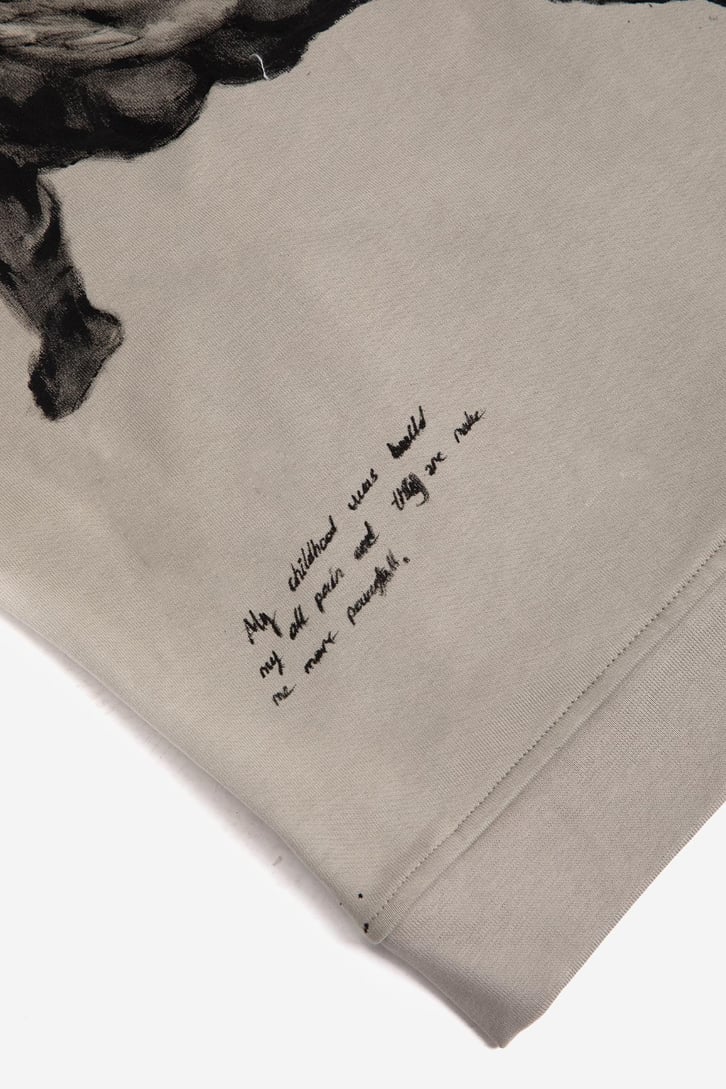 My childhood was build
my all pain and they are make
me more powerfull.